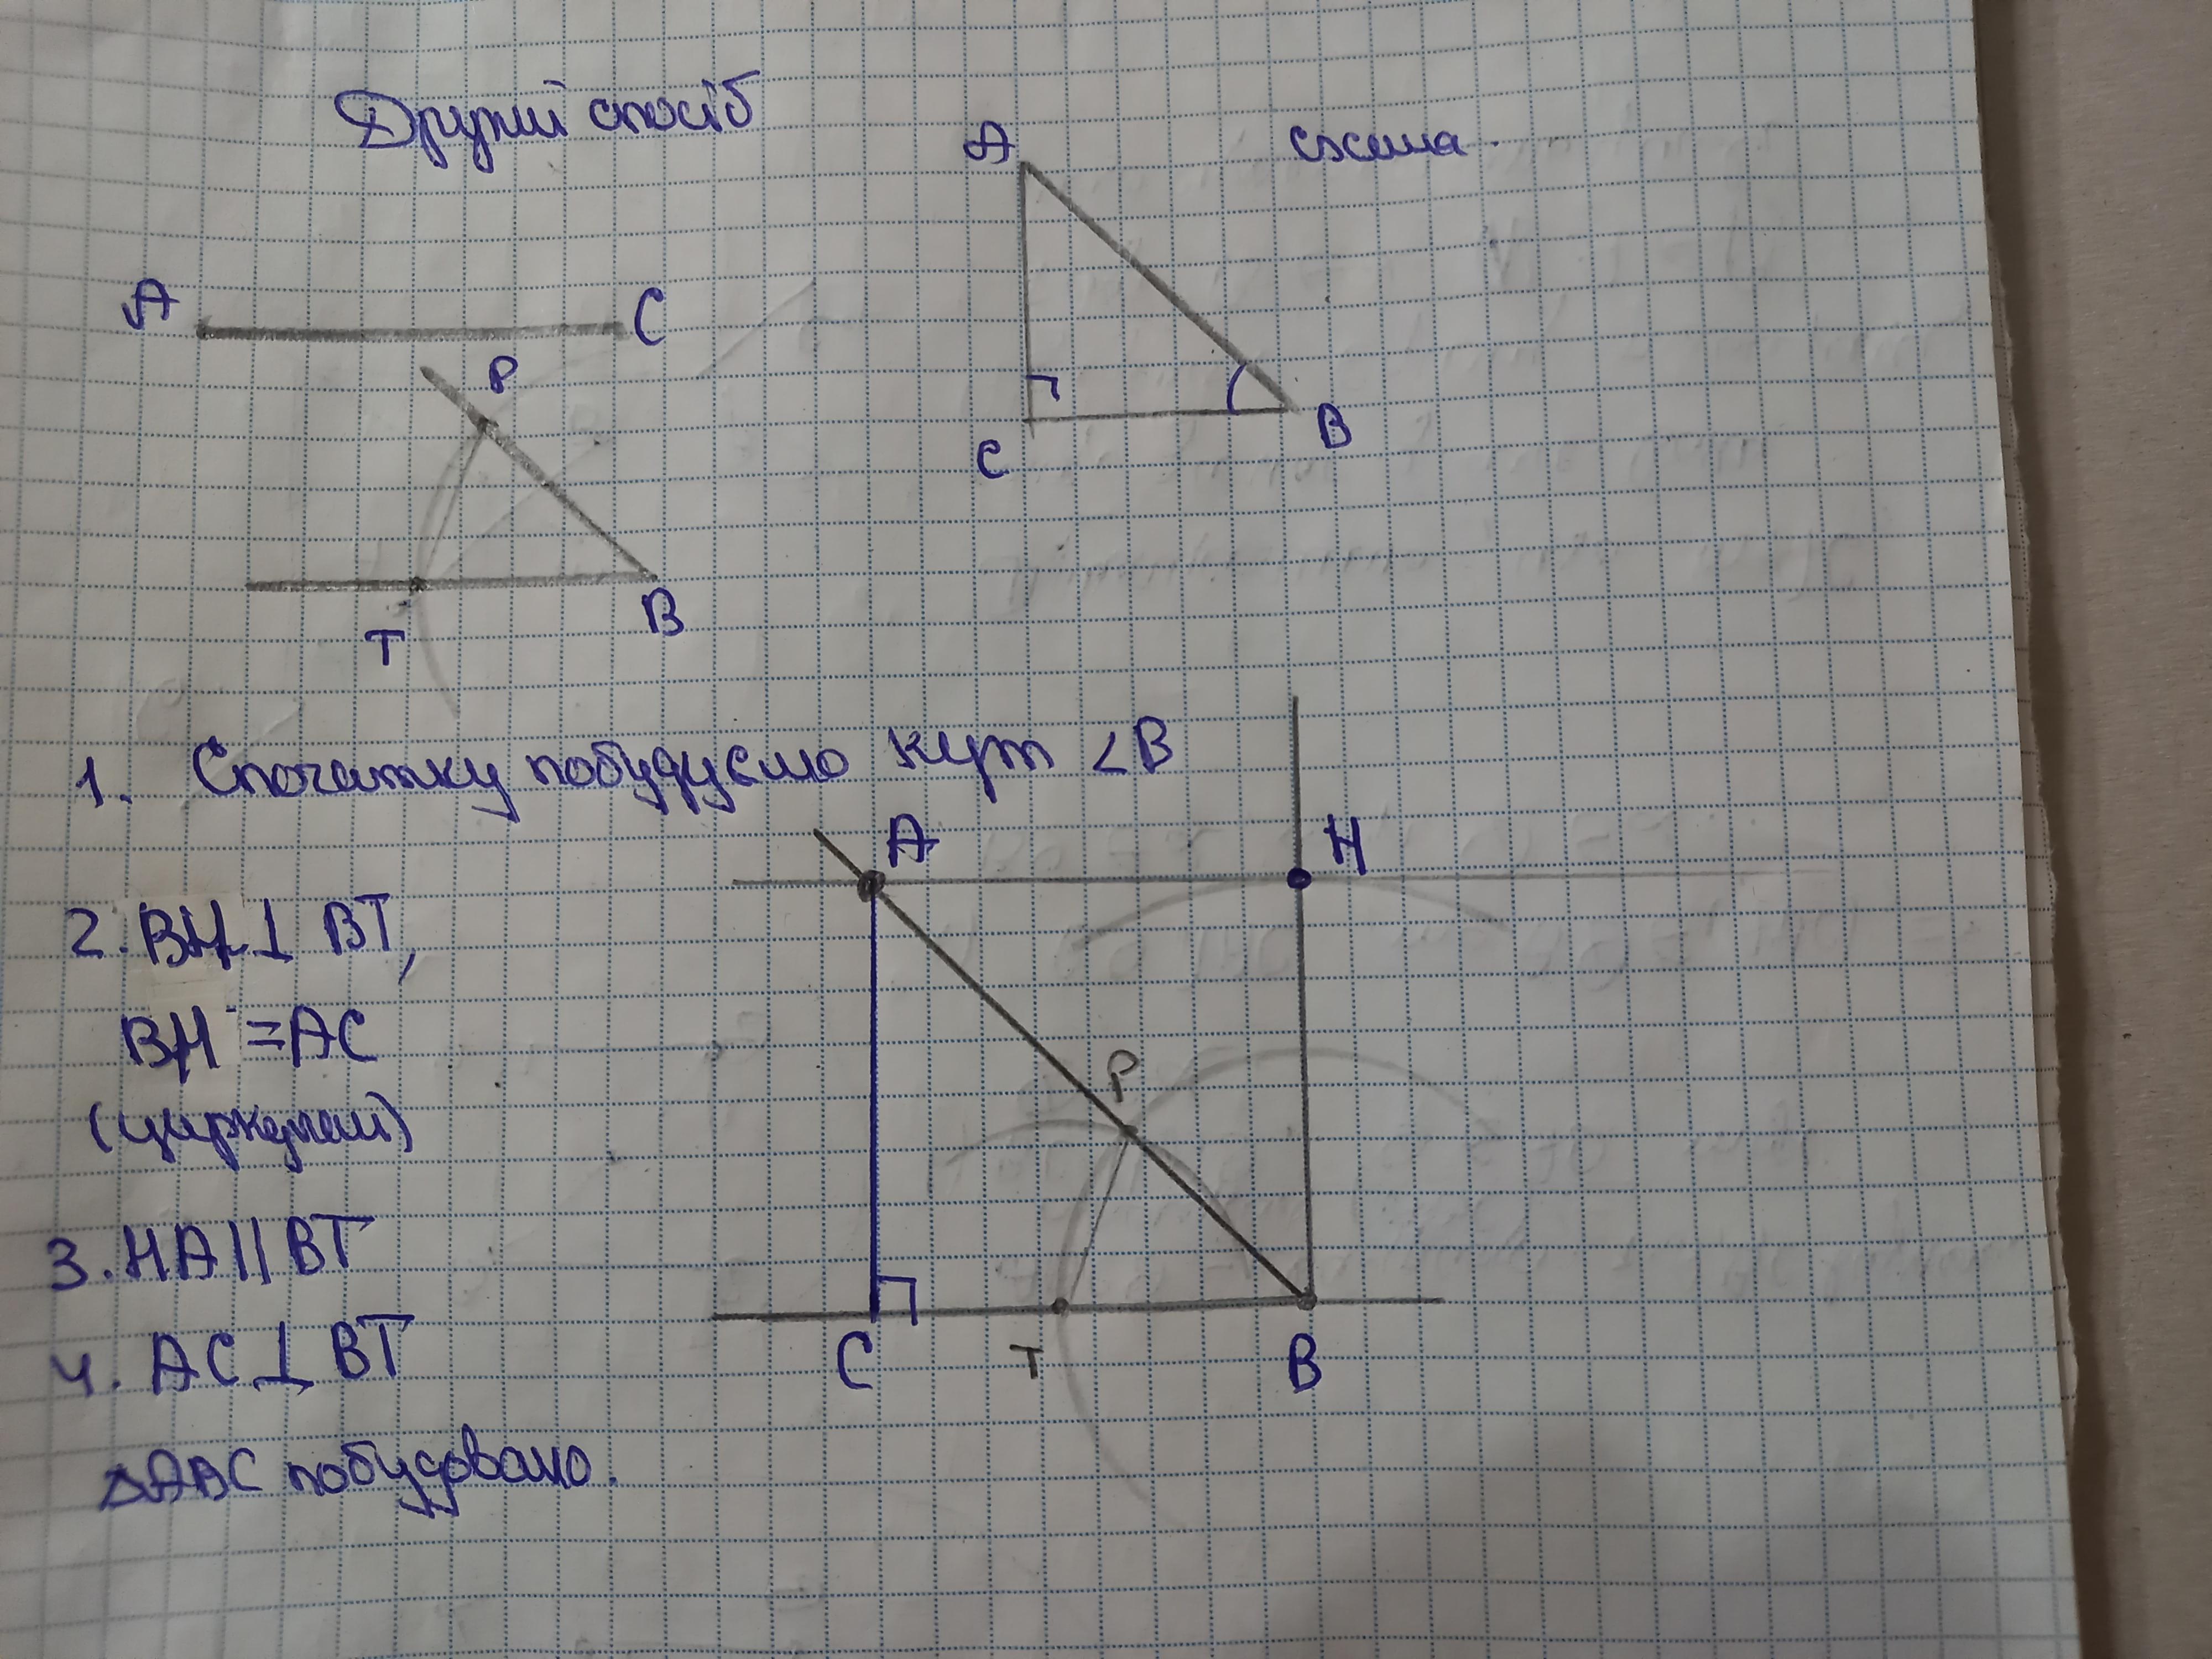 Другий спосіб
схема.
A
C
B
A C
P
T
B
1. Спочатку побудуємо кут ∠B
A H
2. BH ⊥ BT,
BH = AC
(циркулем)
P
3. HA || BT
4. AC ⊥ BT
C T B
△ABC побудовано.